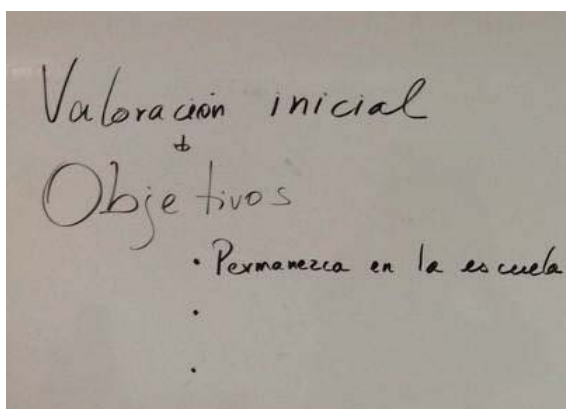 Valoración inicial
↓
Objetivos
• Permanezca en la escuela
•
•